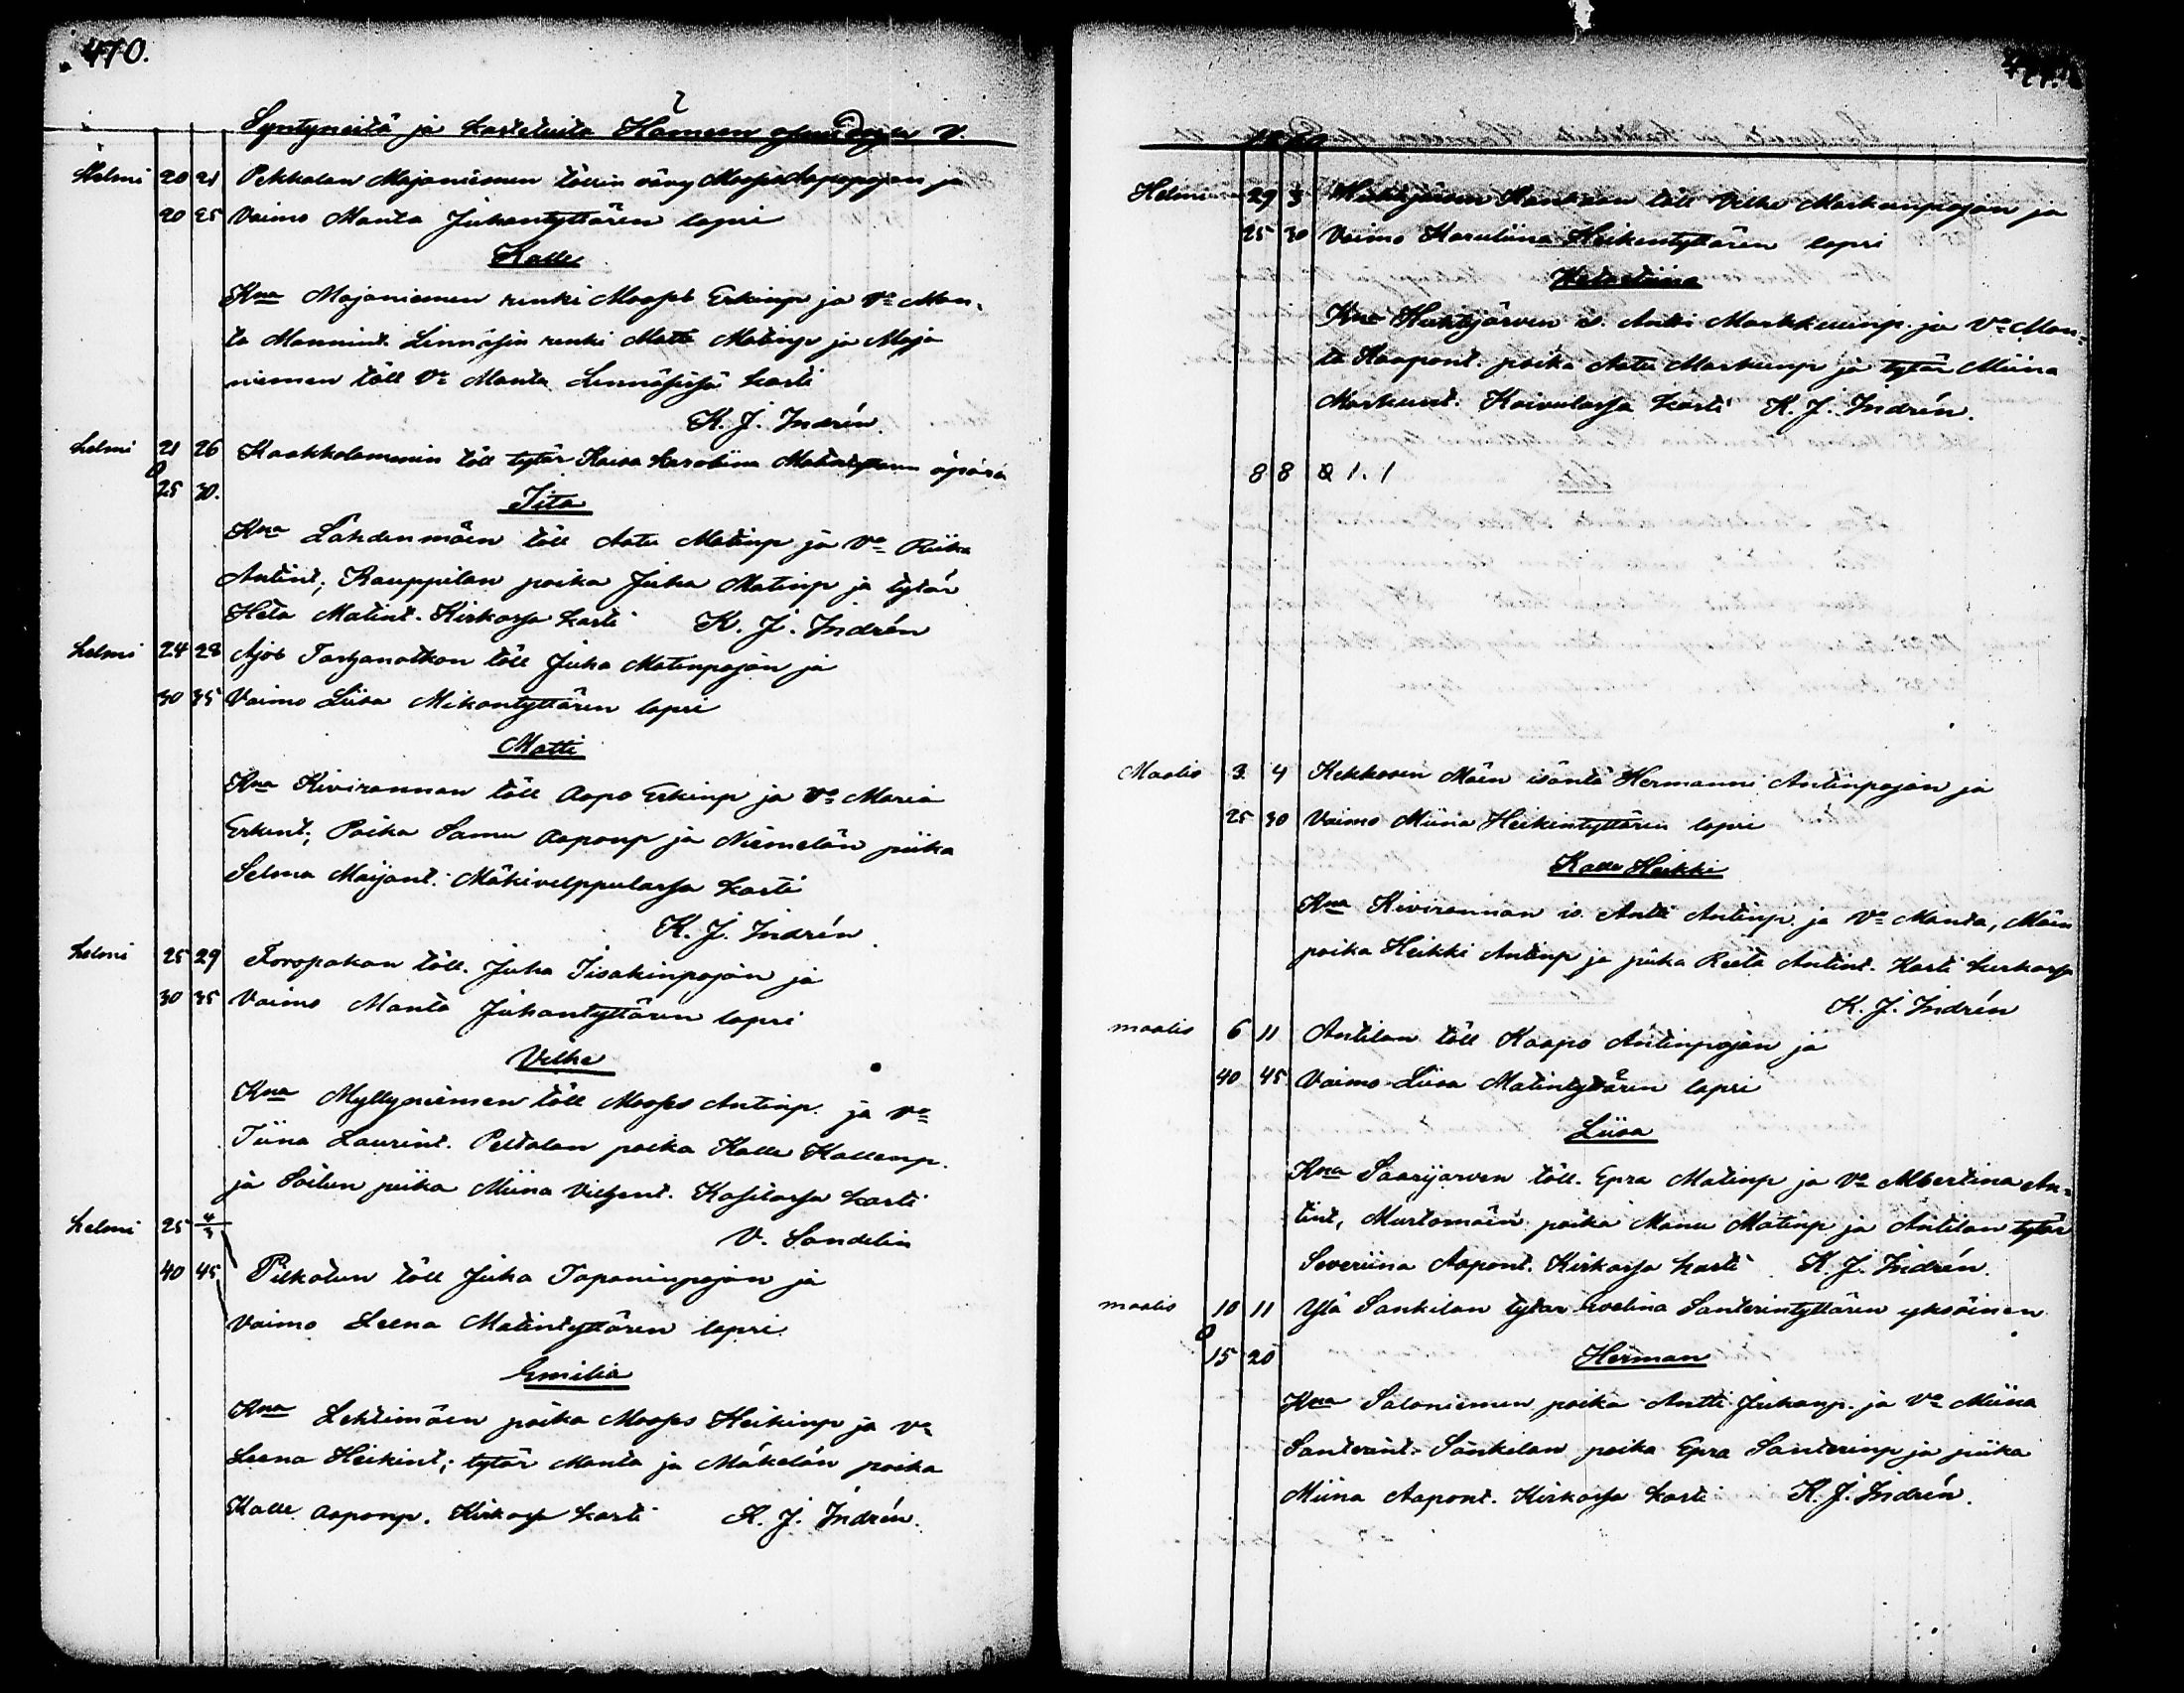 470.
Syntyneitä ja kasteluita Hämeen V.
Helmi 20 21 Pekkalan Majaniemen töllin väny Moses Aapopojan ja
20 25 Vaimo Manta Juhantyttären lapsi
Kalle
Kna Majaniemen renki Moses Erkinp ja Vo Man-
ta Mannint. Linnäsin renki Matti Matinp ja Maja
niemen töll Vo Manta Linnäsissä kasti
K. J. Indrén.
helmi 21 26 Kaakkolammin töll tytär Kaisa Karoliina äpärä
25 30. Iita
Kna Lahdenmäen töll Aatu Matinp ja Vo Riika
Antint; Kauppilan poika Juha Matinp ja tytär
Heta Matint. Kirkossa kasti K. J. Indrén
helmi 24 28 Ajos töll Juha Matinpojan ja
30 35 Vaimo Liisa Mikontyttären lapsi
Matti
Kna Kivirannan töll Aapo Erkinp ja Vo Maria
Erkint; Poika Samu Aaponp ja Niemelän piika
Selma Maijant. Mäkivelppulassa kasti
K. J. Indrén
helmi 25 29 Toropakan töll. Juha Iisakinpojan ja
30 35 Vaimo Manta Juhantyttären lapsi
Velhe
Kna Myllyniemen töll Moses Antinp. ja Vo
Tiina Laurint. Peltolan poika Kalle Kallenp.
ja Soilun piika Miina Viljent. kasti
V. Sandelin
helmi 25 4/3
40 45 Pilkatun töll Juha Tapaninpojan ja
Vaimo Leena Matintyttären lapsi
Emilia
Kna Lehtimäen poika Moses Heikinp ja Vo
Leena Heikint; tytär Manta ja Mäkelän poika
Kalle Aaponp. Kirkossa kasti K. J. Indrén.
Helmi 29 3 töll Velhe Markunpojan ja
25 30 Vaimo Karuliina Heikintyttären lapsi
Kna Huhtijärven is. Antti Markkuunp. ja Vo Man-
ta Kaapont. poika Aatu Markunp ja tytär Miina
Markunt. Koivulassa kasti K. J. Indrén.
8 8 1. 1
Maalis 3 4 Kekkosen Mäen isäntä Hermanni Antinpojan ja
25 30 Vaimo Miina Heikintyttären lapsi
Kalle Heikki
Kna Kivirannan is. Antti Antinp. ja Vo Manta, Mäen
poika Heikki Antinp ja piika Reeta Antint. Kasti kirkossa
K. J. Indrén
maalis 6 11 Antilan töll Kaapo Antinpojan ja
40 45 Vaimo Liisa Matintyttären lapsi
Liisa
Kna Saarijärven töll. Epra Matinp ja Vo Albertina An-
tint, Murtomäen poika Manu Matinp ja Antilan tytär
Severiina Aapont. Kirkossa kasti K. J. Indrén.
maalis 10 11 Ylä Sankilan tytär Evelina Santerintyttären yksöinen
15 20 Herman
Kna Saloniemen poika Antti Juhanp. ja Vo Miina
Santerint. Sankilan poika Epra Santerinp ja piika
Miina Aapont. Kirkossa kasti K. J. Indrén.